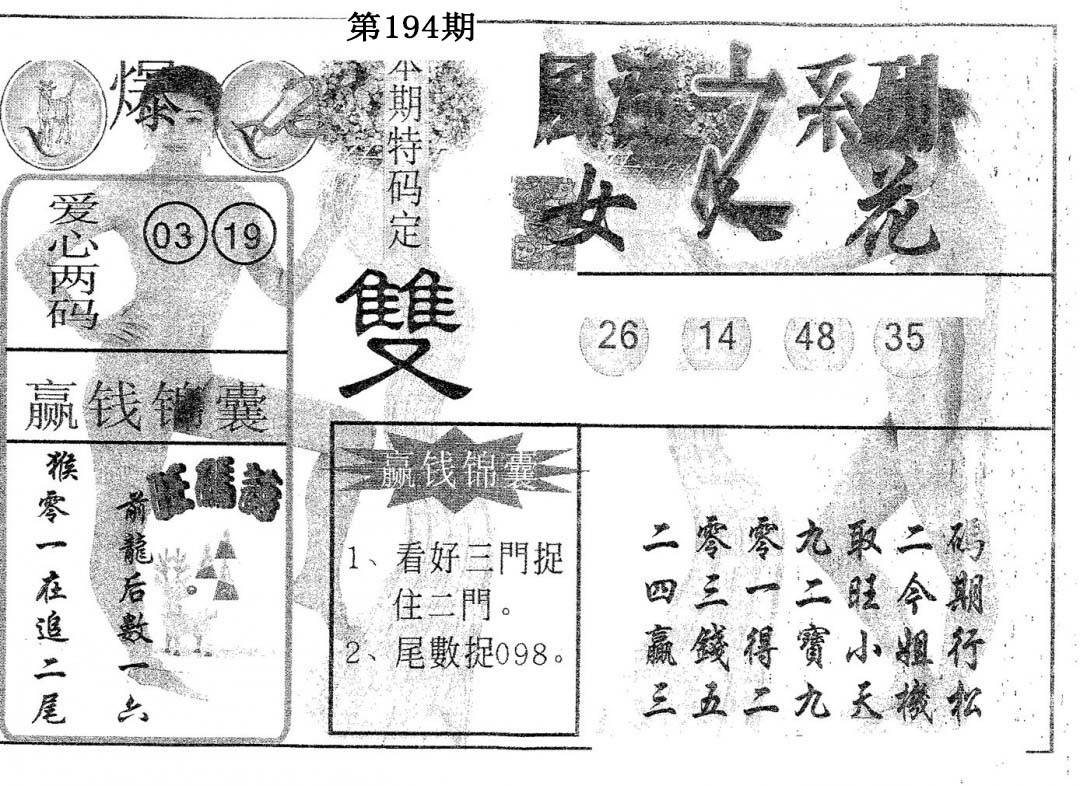 第194期
爆
本期特码定
雙
系列
女 花
爱心两码
03 19
26 14 48 35
赢钱锦囊
猴零一在追二尾
旺碼詩
前龍后數一六
赢钱锦囊
1、看好三門捉
住二門。
2、尾數捉098。
二零零九取二码
四三一二旺今期
赢錢得寶小姐行
三五二九天機松